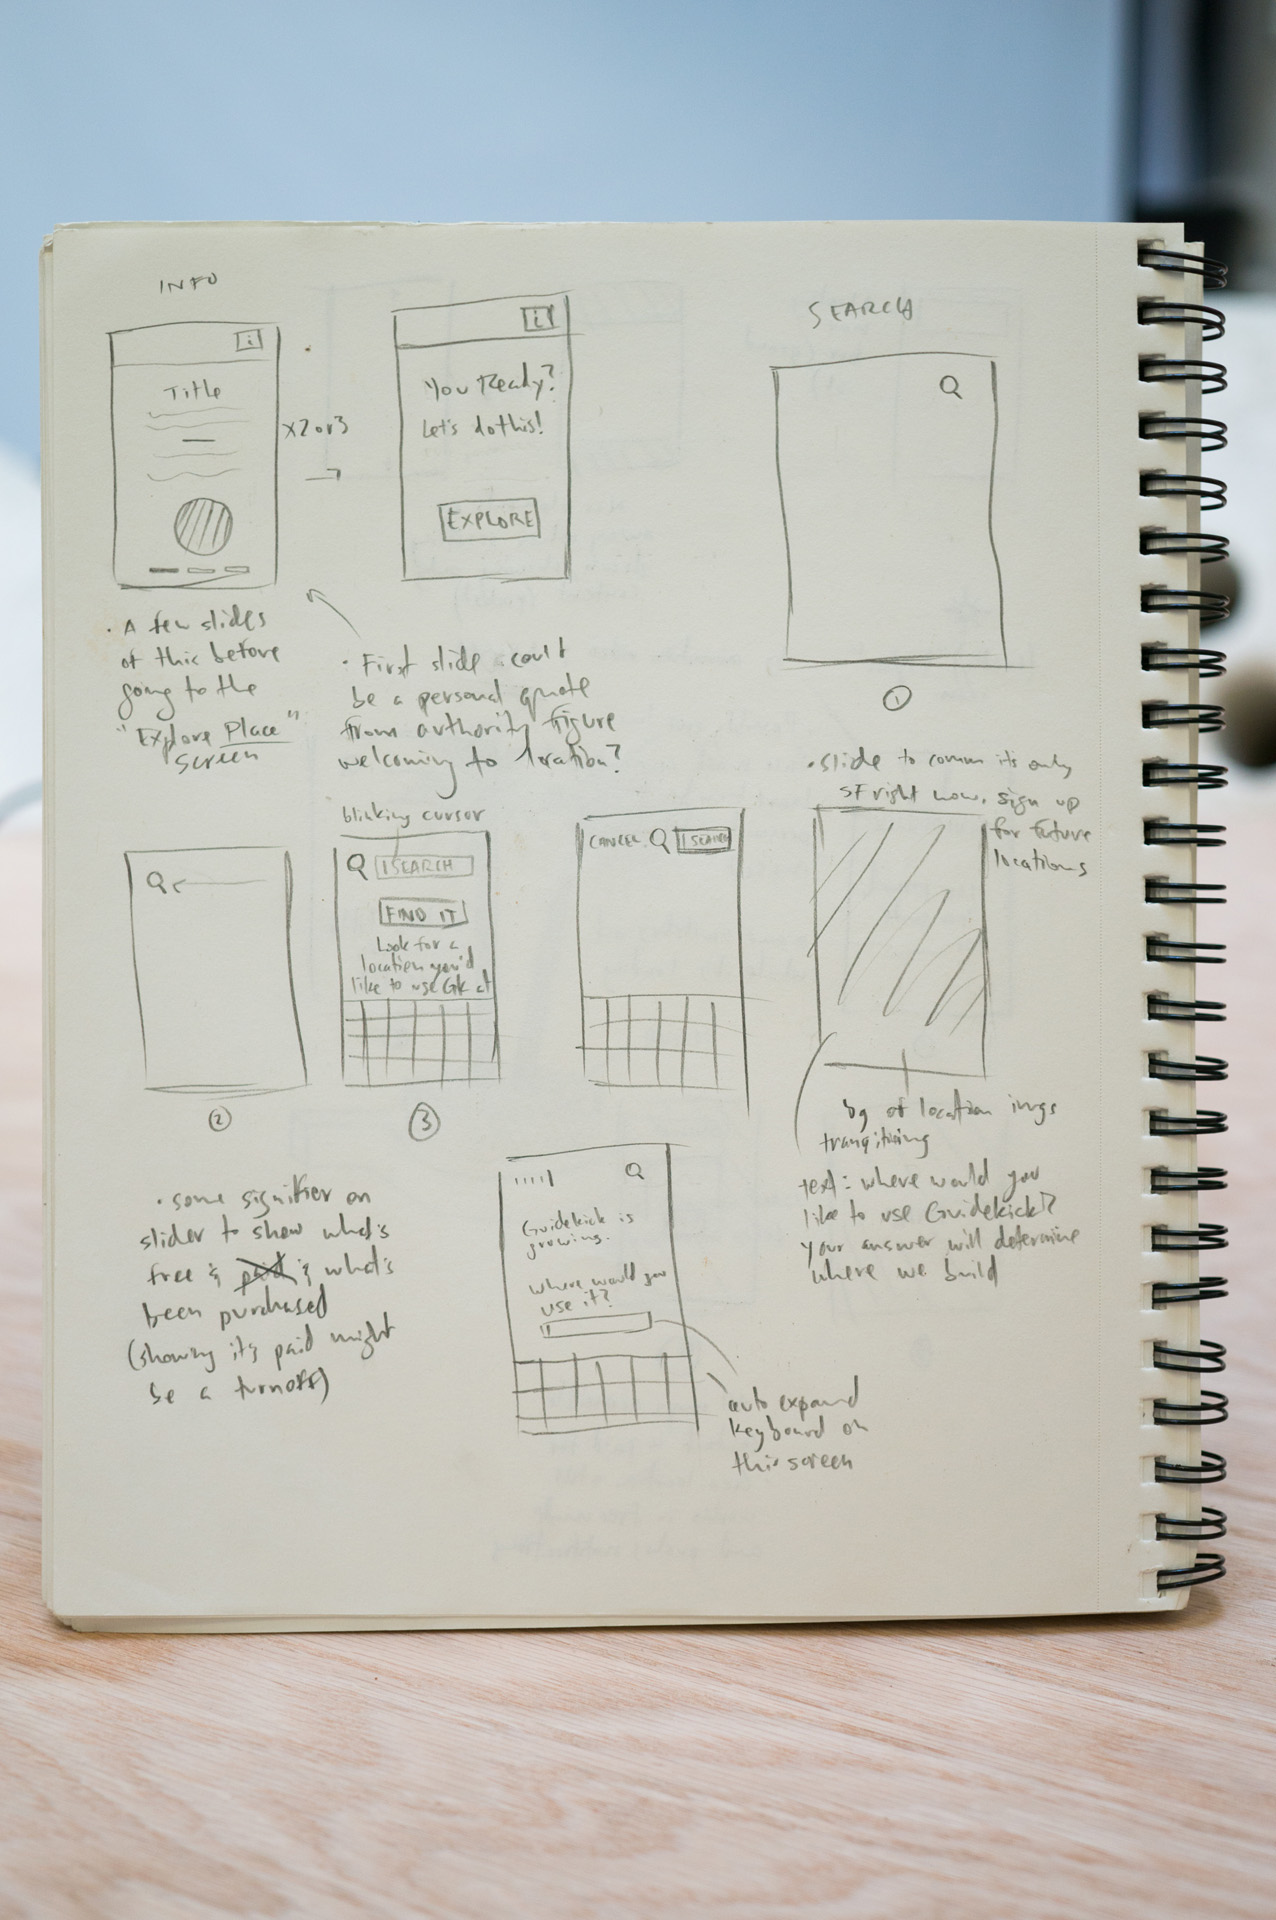 INFO
i
Title
x2 or 3
i
You Ready?
Let's do this!
EXPLORE
SEARCH
①
• A few slides
of this before
going to the
"Explore Place"
screen
• First slide could
be a personal quote
from authority figure
welcoming to location?
• slide to comm its only
SF right now. sign up
for future
locations
②
blinking cursor
SEARCH
FIND IT
Look for a
location you'd
like to use GK at
③
CANCEL
SEARCH
bg of location imgs
transitining
text: where would you
like to use Guidekick?
your answer will determine
where we build
• some signifier on
slider to show what's
free & paid & what's
been purchased
(showing its paid might
be a turnoff)
Guidekick is
growing.
where would you
use it?
auto expand
keyboard on
this screen